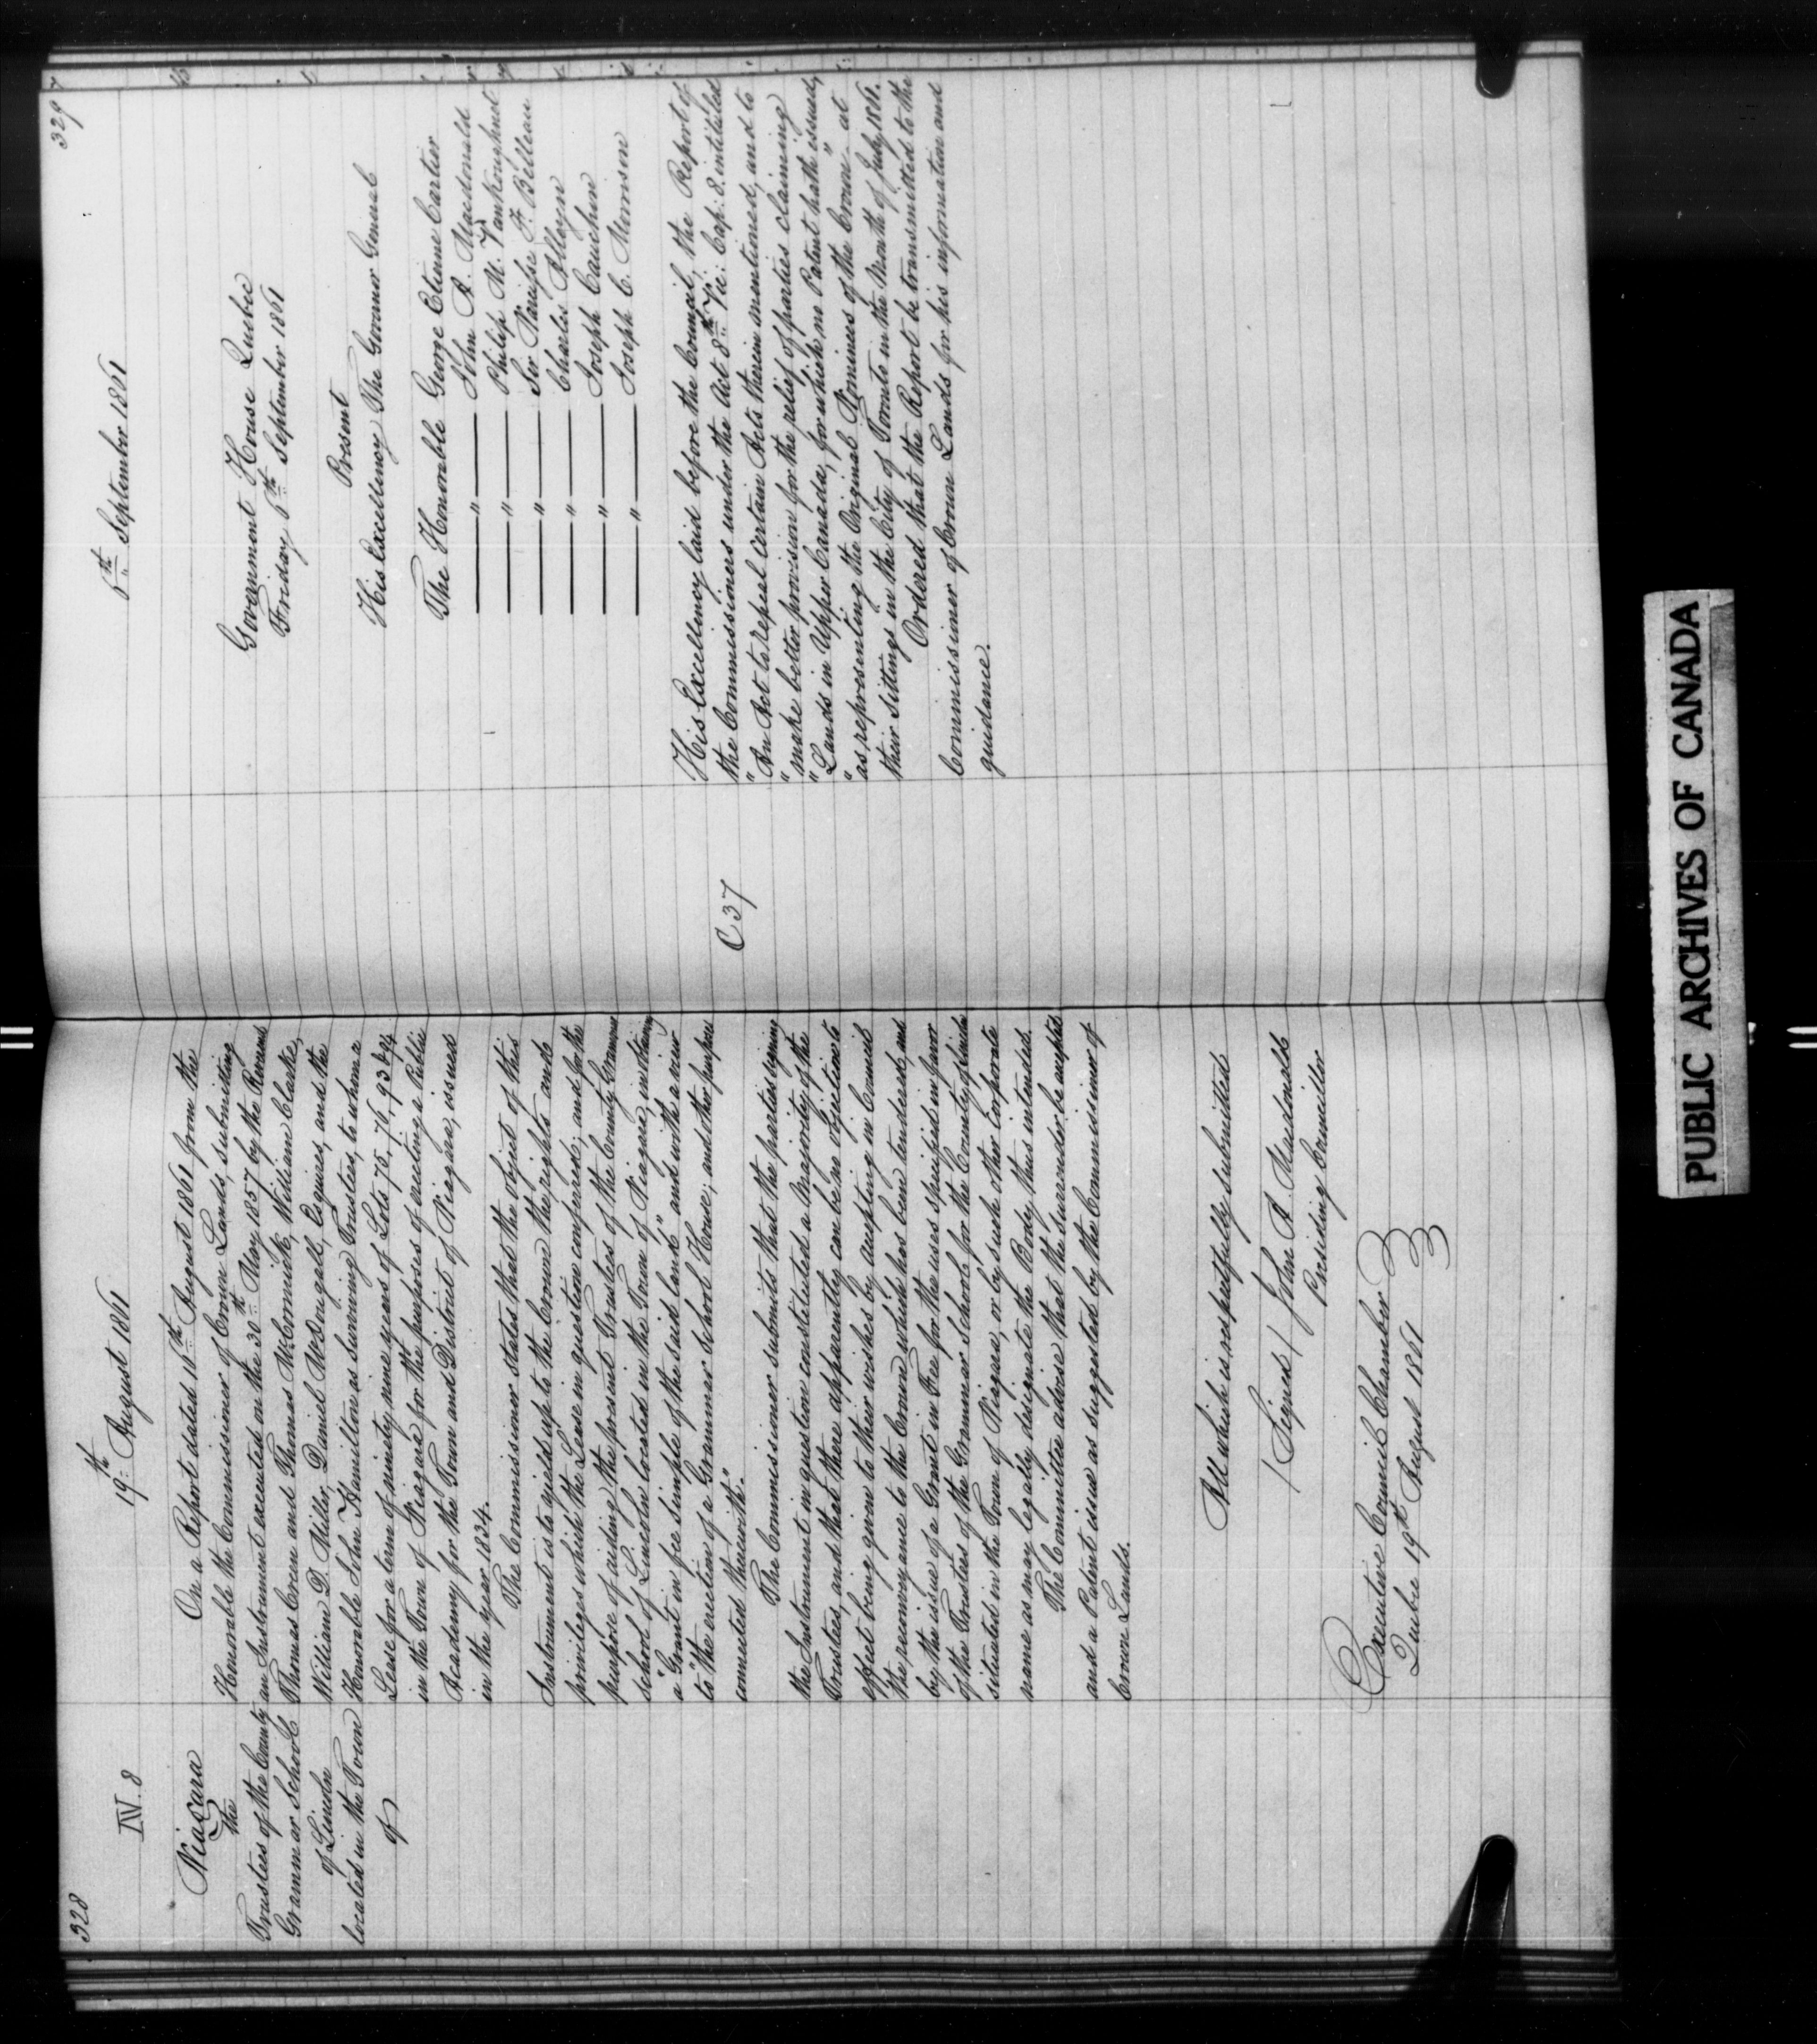 328
19th August 1861
IV. 8
Niagara
the
Trustees of the County
Grammar School
of Lincoln
located in the Town
of
On a Report dated 16th August 1861 from the
Honorable the Commissioner of Crown Lands, submitting
an Instrument executed on the 30th May 1857 by the Reverend
Thomas Creen and Thomas McCormick, William Clarke,
William D. Miller, Daniel McDougall, Esquires, and the
Honorable John Hamilton as surviving Trustees, to whom a
Lease for a term of ninety nine years of Lots 75, 76, 93 & 94
in the Town of Niagara for the purposes of erecting a Public
Academy for the Town and District of Niagara, issued
in the year 1834.
The Commissioner states that the object of this
Instrument is to yield up to the Crown the rights and
privileges which the Lease in question conferred; and for the
purpose of aiding the present Trustees of the County Grammar
school of Lincoln located in the Town of Niagara, in obtaining
a "Grant in fee simple of the said land" and with a view
to "the erection of a Grammar School House, and other purposes
connected therewith."
The Commissioner submits that the parties signing
the Instrument in question constituted a Majority of the
Trustees, and that there apparently can be no objection to
effect being given to their wishes by accepting in Council
the reconveyance to the Crown which has been tendered, and
by the issue of a Grant in Fee for the uses specified in favor
of the Trustees of the Grammar School for the County of Lincoln
situated in the Town of Niagara, or by such other Corporate
name as may legally designate the Body thus intended.
The Committee advise that the surrender be accepted
and a Patent issue as suggested by the Commissioner of
Crown Lands.
All which is respectfully submitted
/ Signed / John A. Macdonald
Presiding Councillor
Executive Council Chamber
Quebec 19th August 1861
329
6th September 1861
Government House Quebec
Friday 6th September 1861
Present
His Excellency The Governor General
The Honorable George Etienne Cartier
" John A. Macdonald
" Philip M. Vankoughnet
" Sir Narcisse F. Belleau
" Charles Alleyn
" Joseph Cauchon
" Joseph C. Morrison
C 37
His Excellency laid before the Council, the Report of
the Commissioners under the Act 8th Vic: Cap: 8. intituled
"An Act to repeal certain Acts therein mentioned, and to
"make better provision for the relief of parties claiming
"Lands in Upper Canada, for which no Patent hath issued,
"as representing the Original Nominees of the Crown" at
their Sittings in the City of Toronto in the Month of July 1861.
Ordered that the Report be transmitted to the
Commissioner of Crown Lands for his information and
guidance.
PUBLIC ARCHIVES OF CANADA